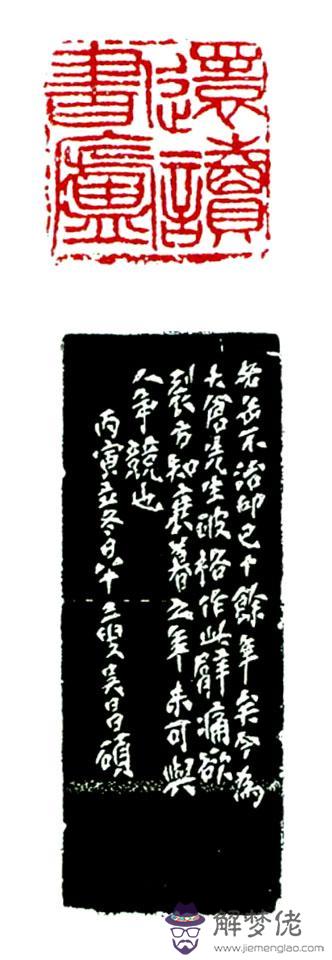 還讀
書廬
老缶不治印已十餘年矣今為
大倉先生破格作此臂痛欲
裂方知衰暮之年未可與
人爭競也
丙寅立冬日八十三叟吳昌碩
解梦佬
www.jiemenglao.com